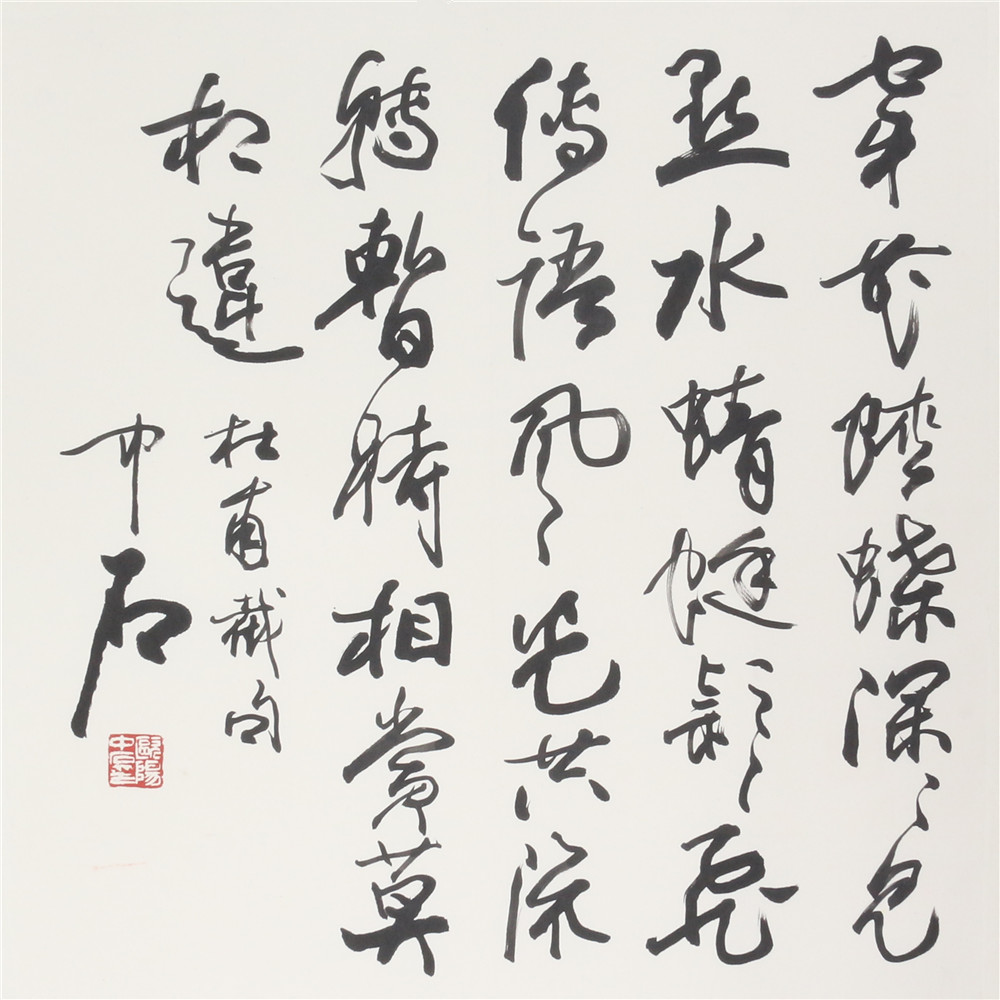 穿花蛺蝶深〻見
點水蜻蜓款〻飛
傳語風光共流
轉暫時相賞莫
相違
杜甫截句
中石
歐陽中石